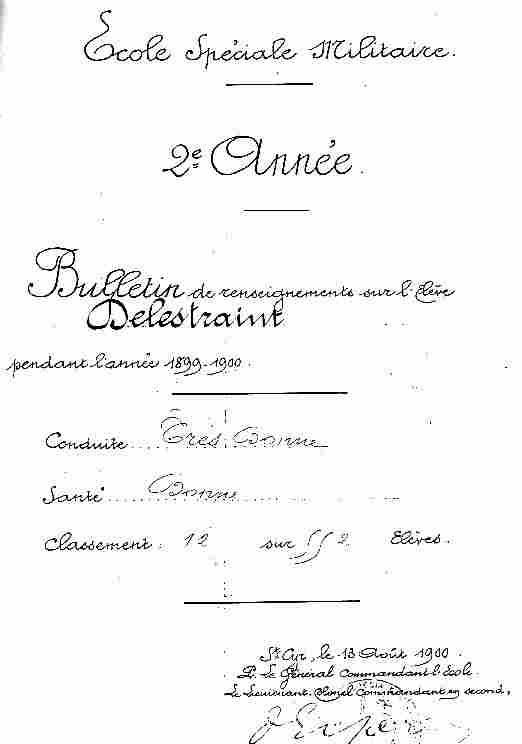 Ecole Spéciale Militaire.
2e Année.
Bulletin de renseignements sur l'Elève
Delestraint
pendant l'année 1899-1900.
Conduite .... Très Bonne
Santé ........ Bonne .... ....
Classement : 12 sur 552 Elèves.
St Cyr, le 13 Août 1900.
P. Le Général Commandant l'Ecole.
Le Lieutenant Colonel Commandant en second,